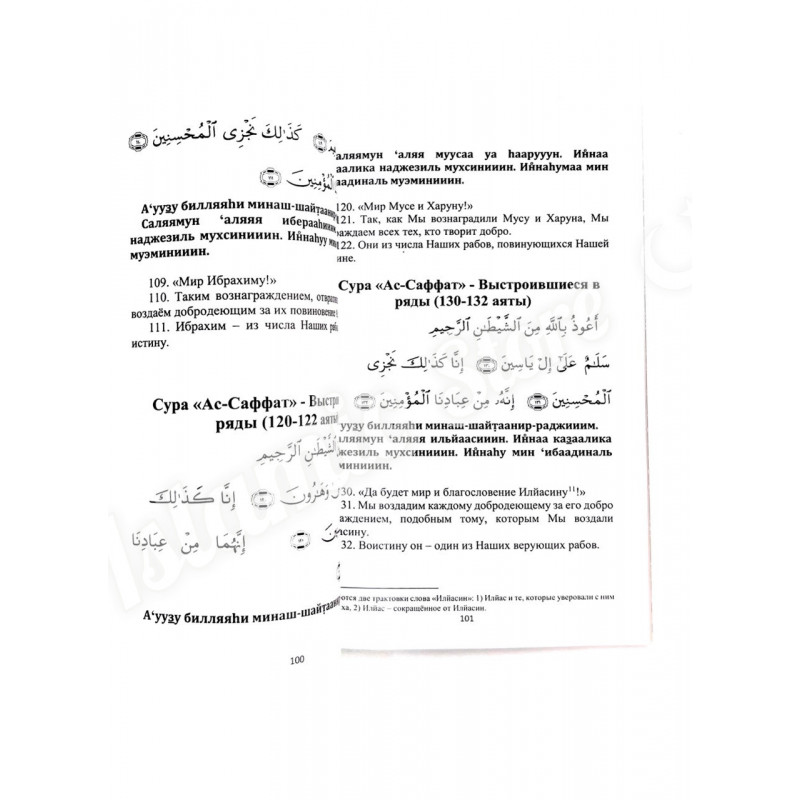 كَذَٰلِكَ نَجْزِى ٱلْمُحْسِنِينَ
ٱلْمُؤْمِنِينَ
А‘ууз̱у билляяһи минаш-шайт̣аанир
Саляямун ‘аляяя ибераа
наджезиль мухсинииин. Ин̃наһуу мин
муэминииин.
109. «Мир Ибрахиму!»
110. Таким вознаграждением,
воздаём добродеющим за их повиновение
111. Ибрахим – из числа Наших
истину.
Сура «Ас-Саффат» - Выстро
ряды (120-122 аяты
ٱلشَّيْطَٰنِ ٱلرَّجِيمِ
وَهَٰرُونَ إِنَّا كَذَٰلِكَ
إِنَّهُمَا مِنْ عِبَادِنَا
А‘ууз̱у билляяһи минаш-шайт̣аани
100
аляямун ‘аляя муусаа уа һаарууун. Ин̃наа
аалика наджезиль мухсинииин. Ин̃наһумаа мин
аадиналь муэминииин.
120. «Мир Мусе и Харуну!»
121. Так, как Мы вознаградили Мусу и Харуна, Мы
раждаем всех тех, кто творит добро.
122. Они из числа Наших рабов, повинующихся Нашей
ине.
Сура «Ас-Саффат» - Выстроившиеся в
ряды (130-132 аяты)
أَعُوذُ بِٱللَّهِ مِنَ ٱلشَّيْطَٰنِ ٱلرَّجِيمِ
سَلَٰمٌ عَلَىٰٓ إِلْ يَاسِينَ ١٣٠ إِنَّا كَذَٰلِكَ نَجْزِى
ٱلْمُحْسِنِينَ ١٣١ إِنَّهُۥ مِنْ عِبَادِنَا ٱلْمُؤْمِنِينَ ١٣٢
ууз̱у билляяһи минаш-шайт̣аанир-раджииим.
ляямун ‘аляяя ильйаасииин. Ин̃наа каз̱аалика
жезиль мухсинииин. Ин̃наһу мин ‘ибаадиналь
минииин.
30. «Да будет мир и благословение Илйасину¹¹!»
31. Мы воздадим каждому добродеющему за его добро
аждением, подобным тому, которым Мы воздали
асину.
32. Воистину он – один из Наших верующих рабов.
ются две трактовки слова «Илйасин»: 1) Илйас и те, которые уверовали с ним
ха, 2) Илйас – сокращённое от Илйасин.
101